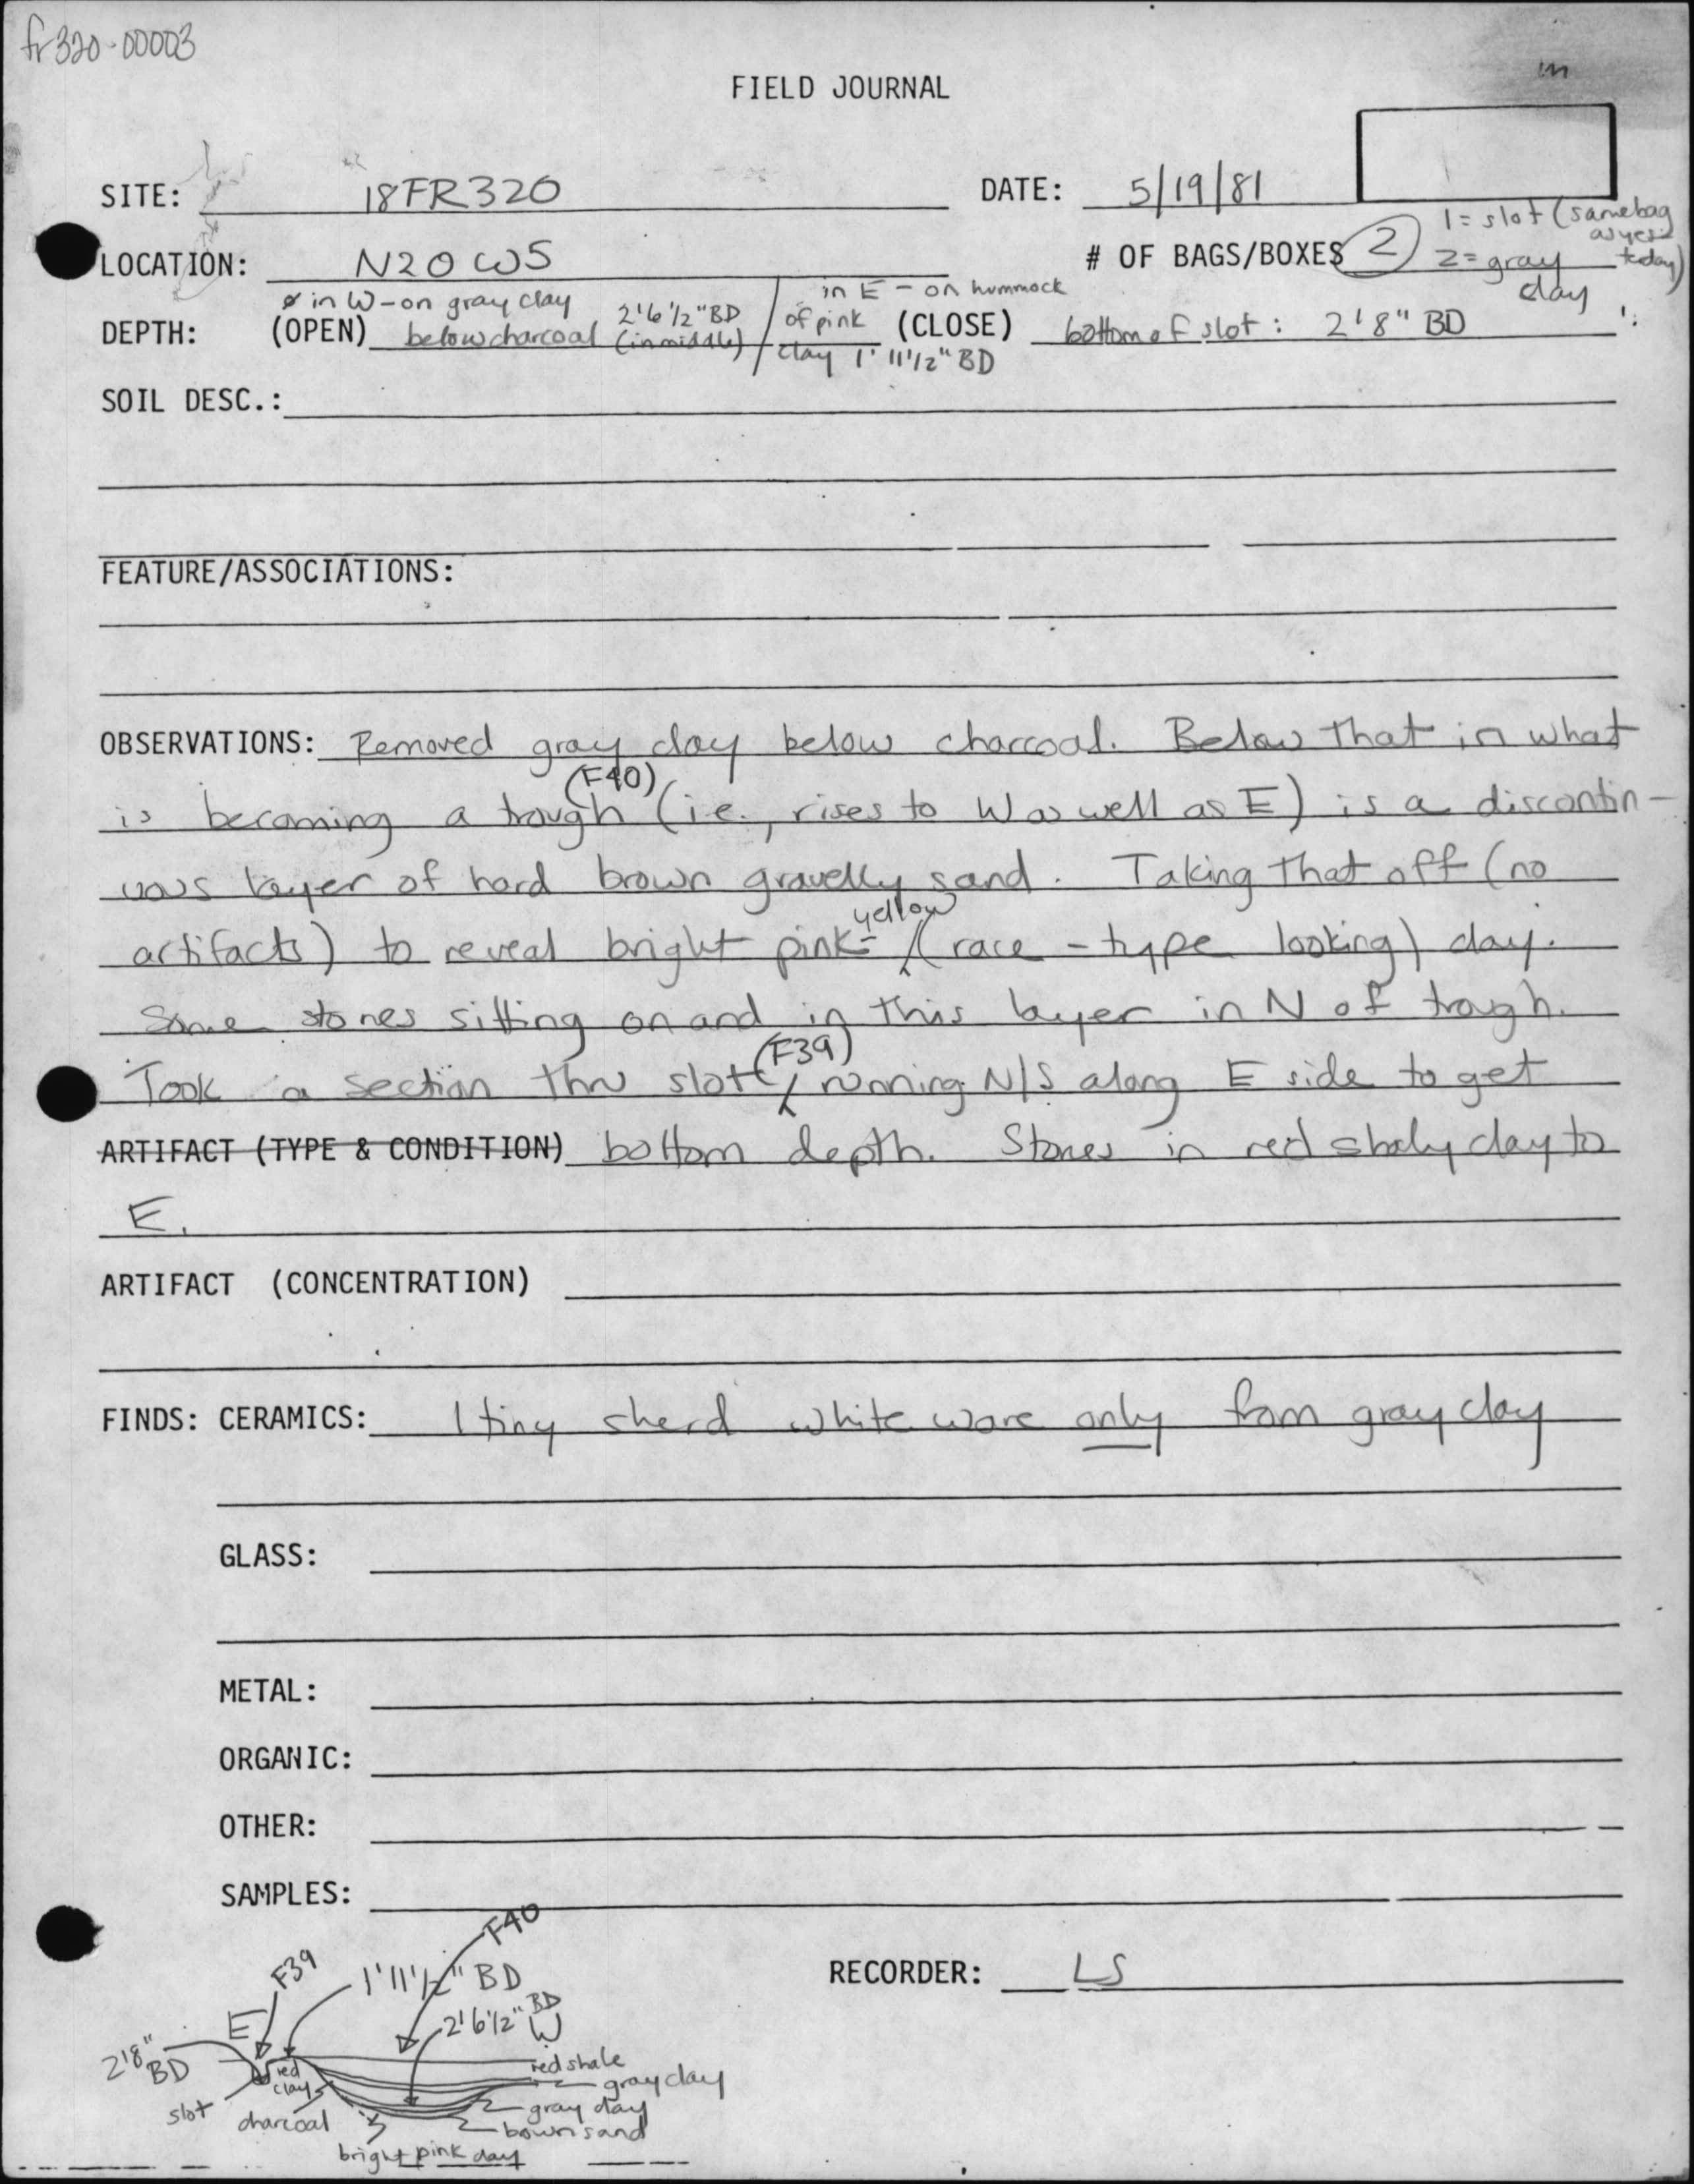 fr320-00003
m
FIELD JOURNAL
SITE: 18FR320 DATE: 5/19/81
LOCATION: N20 W5 # OF BAGS/BOXES 2 1 = slot (same bag as yesterday) 2 = gray clay
in W - on gray clay 2'6½" BD / in E - on hummock
DEPTH: (OPEN) below charcoal (in middle) / of pink clay 1' 11½" BD (CLOSE) bottom of slot: 2'8" BD
SOIL DESC.:
FEATURE/ASSOCIATIONS:
OBSERVATIONS: Removed gray clay below charcoal. Below that in what
is becoming a trough (F40) (i.e., rises to W as well as E) is a discontin-
uous layer of hard brown gravelly sand. Taking that off (no
artifacts) to reveal bright pink-yellow (race-type looking) clay.
Some stones sitting on and in this layer in N of trough.
Took a section thru slot (F39) running N/S along E side to get
ARTIFACT (TYPE & CONDITION) bottom depth. Stones in red shaly clay to
E.
ARTIFACT (CONCENTRATION)
FINDS: CERAMICS: 1 tiny sherd white ware only from gray clay
GLASS:
METAL:
ORGANIC:
OTHER:
SAMPLES:
RECORDER: LS
F40
F39
1'11½" BD
E
2'6½" BD
W
2'8" BD
red shale
red clay
gray clay
slot
charcoal
gray clay
brown sand
bright pink clay